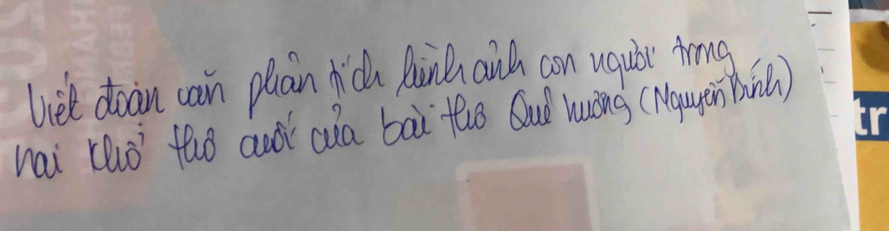 Viết đoạn văn phân tích hình ảnh con người trong
hai khổ thơ cuối của bài thơ Quê hương (Nguyễn Bính)
tr